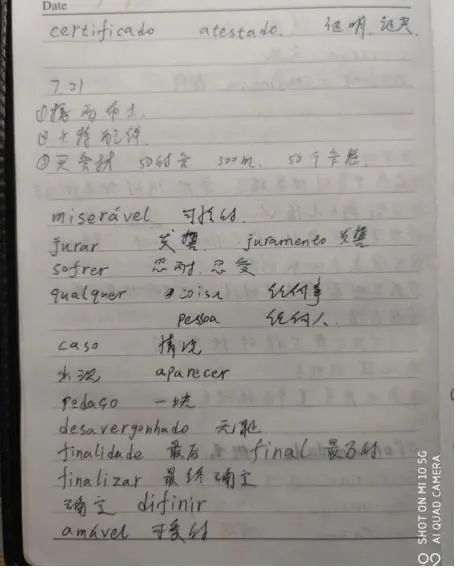 Date
certificado atestado. 证明, 证实.
7.21
① 布土
② 卡特配件
③ 买管材 50的管 300m. 50个管卡
miserável 可怜的.
jurar 发誓. juramento 发誓
sofrer 忍耐. 忍受
qualquer coisa 任何事
pessoa 任何人.
caso 情况
出现 aparecer
pedaço 一块
desavergonhado 无耻.
finalidade 最后 final 最后的
finalizar 最终确定
确定 difinir
amável 可爱的
SHOT ON MI 10 5G
AI QUAD CAMERA